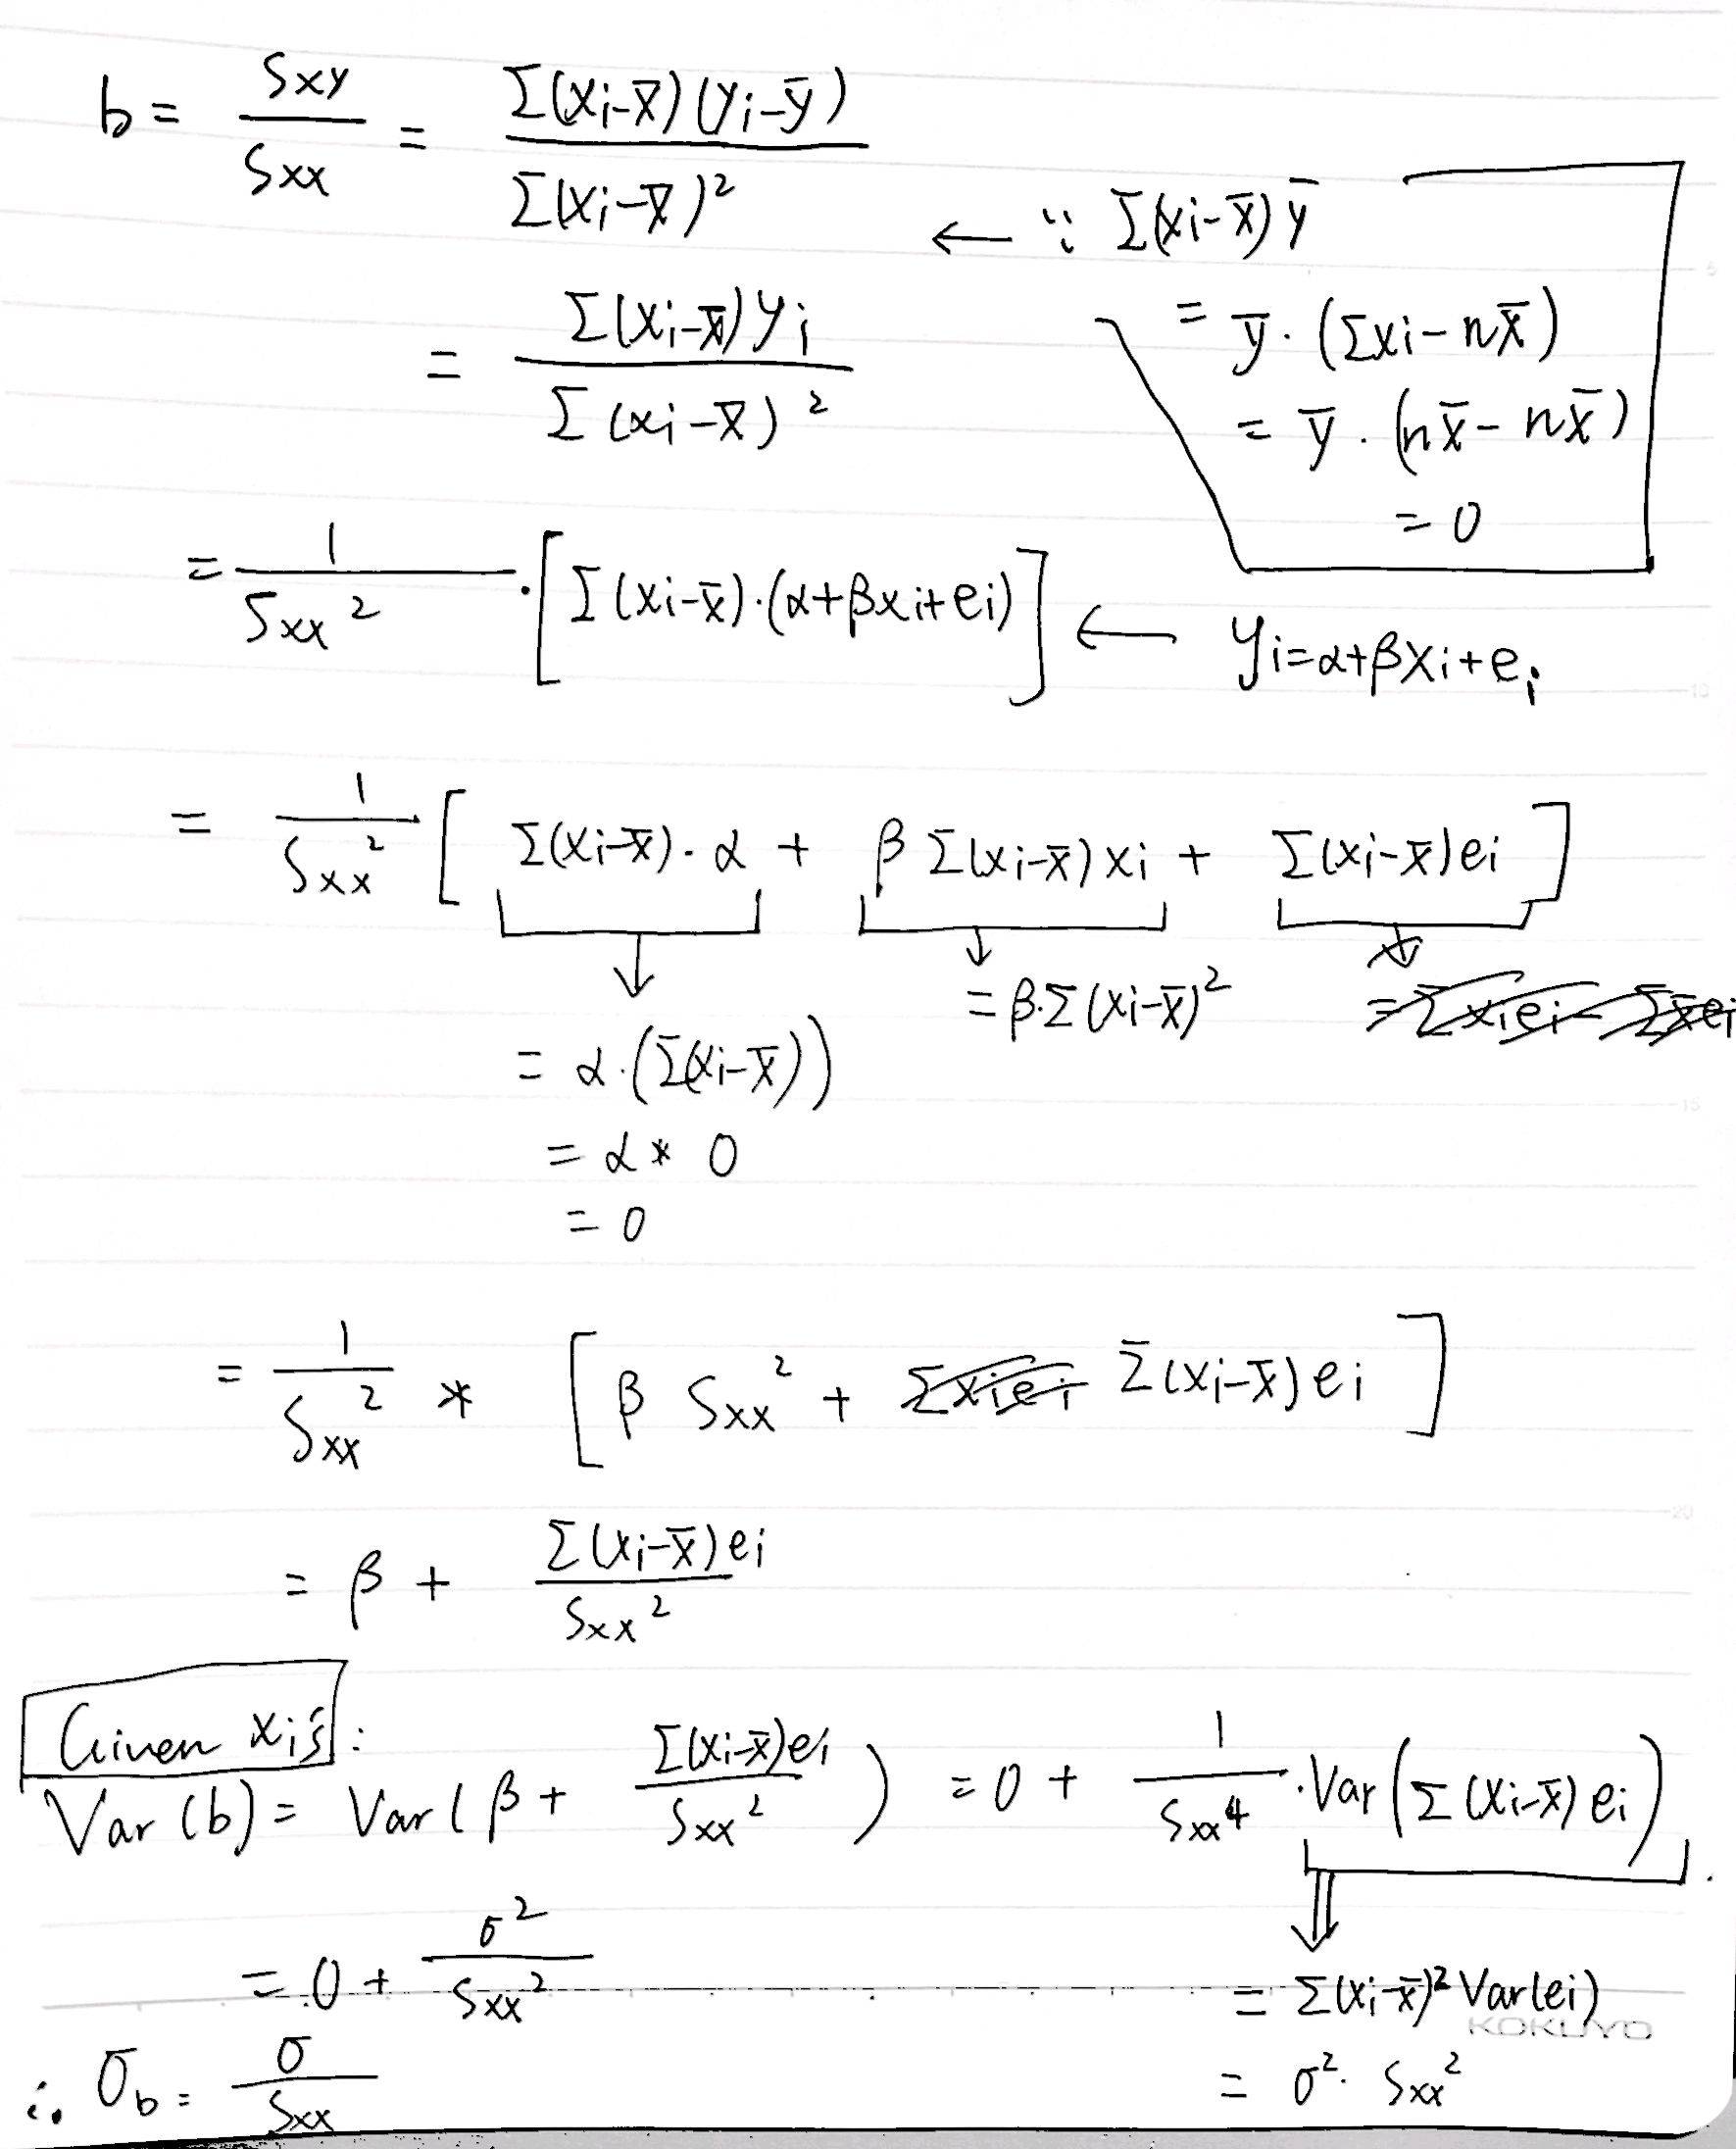 b = Sxy / Sxx = Σ(xi-x̄)(yi-ȳ) / Σ(xi-x̄)²
← ∵ Σ(xi-x̄)ȳ
= ȳ·(Σxi-nx̄)
= ȳ·(nx̄-nx̄)
= 0
= Σ(xi-x̄)yi / Σ(xi-x̄)²
= 1 / Sxx² · [Σ(xi-x̄)·(α+βxi+ei)] ← yi=α+βxi+ei
= 1 / Sxx² [Σ(xi-x̄)·α + βΣ(xi-x̄)xi + Σ(xi-x̄)ei]
= α·(Σ(xi-x̄))
= α * 0
= 0
= β·Σ(xi-x̄)²
= Σxiei - Σx̄ei
= 1 / Sxx² * [β Sxx² + Σxiei Σ(xi-x̄)ei]
= β + Σ(xi-x̄)ei / Sxx²
Given xi's:
Var(b) = Var(β + Σ(xi-x̄)ei / Sxx²) = 0 + 1 / Sxx⁴ · Var(Σ(xi-x̄)ei)
= Σ(xi-x̄)² Var(ei)
= σ²· Sxx²
= 0 + σ² / Sxx²
∴ σb = σ / Sxx
KOKUYO
5
10
15
20